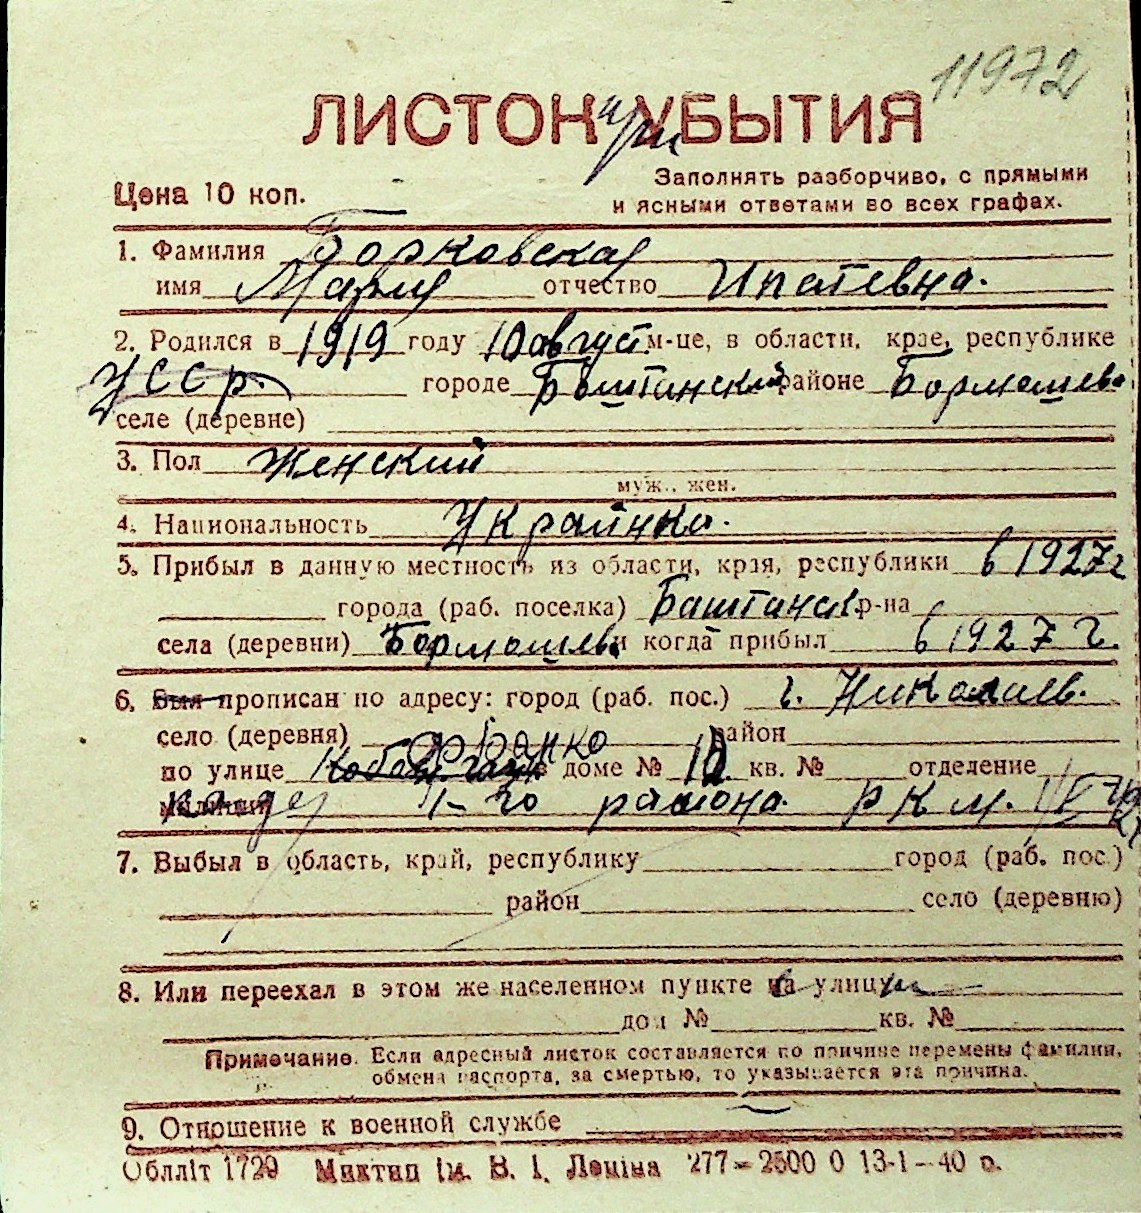 11972
ЛИСТОК при УБЫТИЯ
Цена 10 коп.
Заполнять разборчиво, с прямыми
и ясными ответами во всех графах.
1. Фамилия Борковская
имя Мария отчество Ипатевна.
2. Родился в 1919 году 10 август. м-це, в области, крае, республике
УССР. городе Баштанский районе Бормашева
селе (деревне)
3. Пол женский
муж., жен.
4. Национальность Украинка.
5. Прибыл в данную местность из области, края, республики в 1927 г
города (раб. поселка) Баштанск. р-на
села (деревни) Бормашева и когда прибыл в 1927 г.
6. Был прописан по адресу: город (раб. пос.) г. Николаев.
село (деревня) Франко район
по улице доме № 12 кв. № отделение
милиции 1-го района Р К М.
7. Выбыл в область, край, республику город (раб. пос.)
район село (деревню)
8. Или переехал в этом же населенном пункте на улицу
дом № кв. №
Примечание. Если адресный листок составляется по причине перемены фамилии,
обмена паспорта, за смертью, то указывается эта причина.
9. Отношение к военной службе
Облліт 1729 Миктип ім. В. І. Леніна 277–2500 0 13-1–40 р.